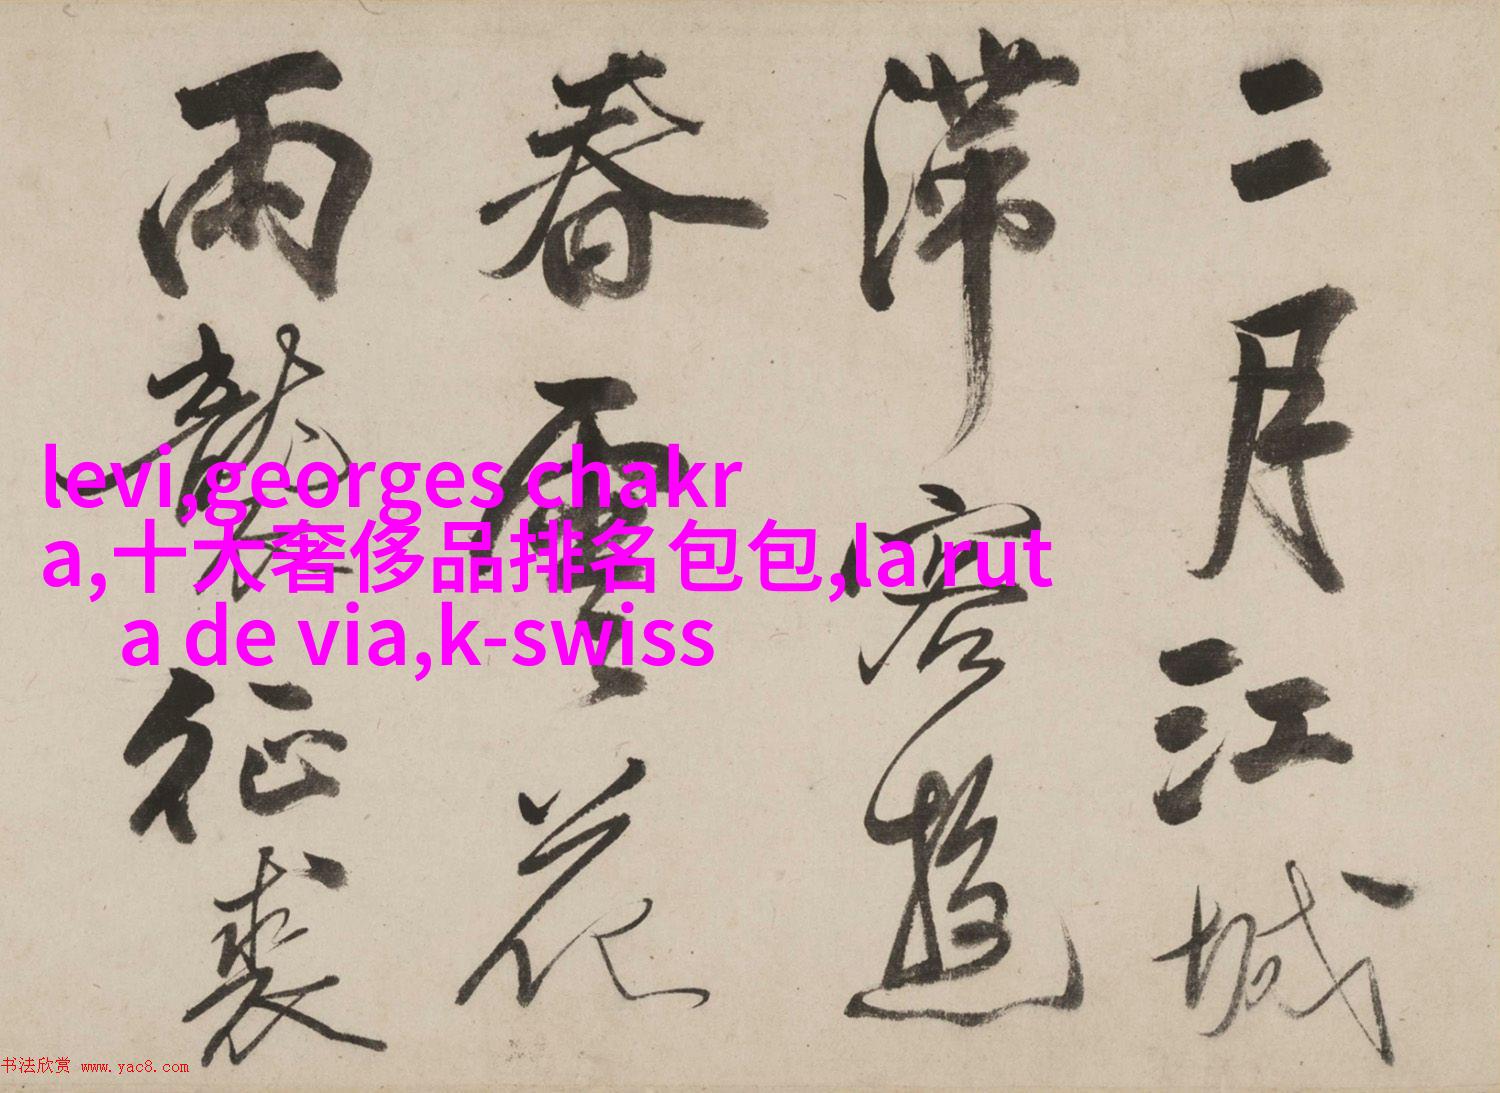 二月江城
滞客遊
春雲花
雨龍衣征裘
levi,georges chakr
a,十大奢侈品排名包包,la rut
a de via,k-swiss
书法欣赏 www.yac8.com